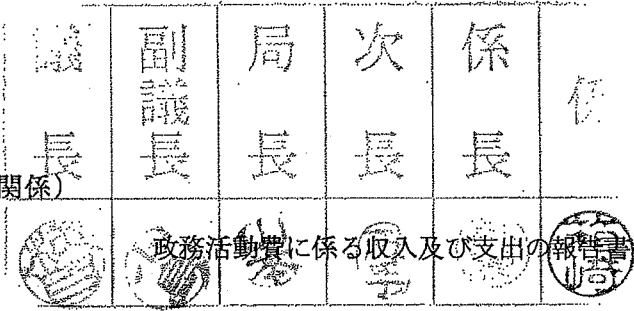 議長
副議長
局長
次長
係長
係
関係)
政務活動費に係る収入及び支出の報告書